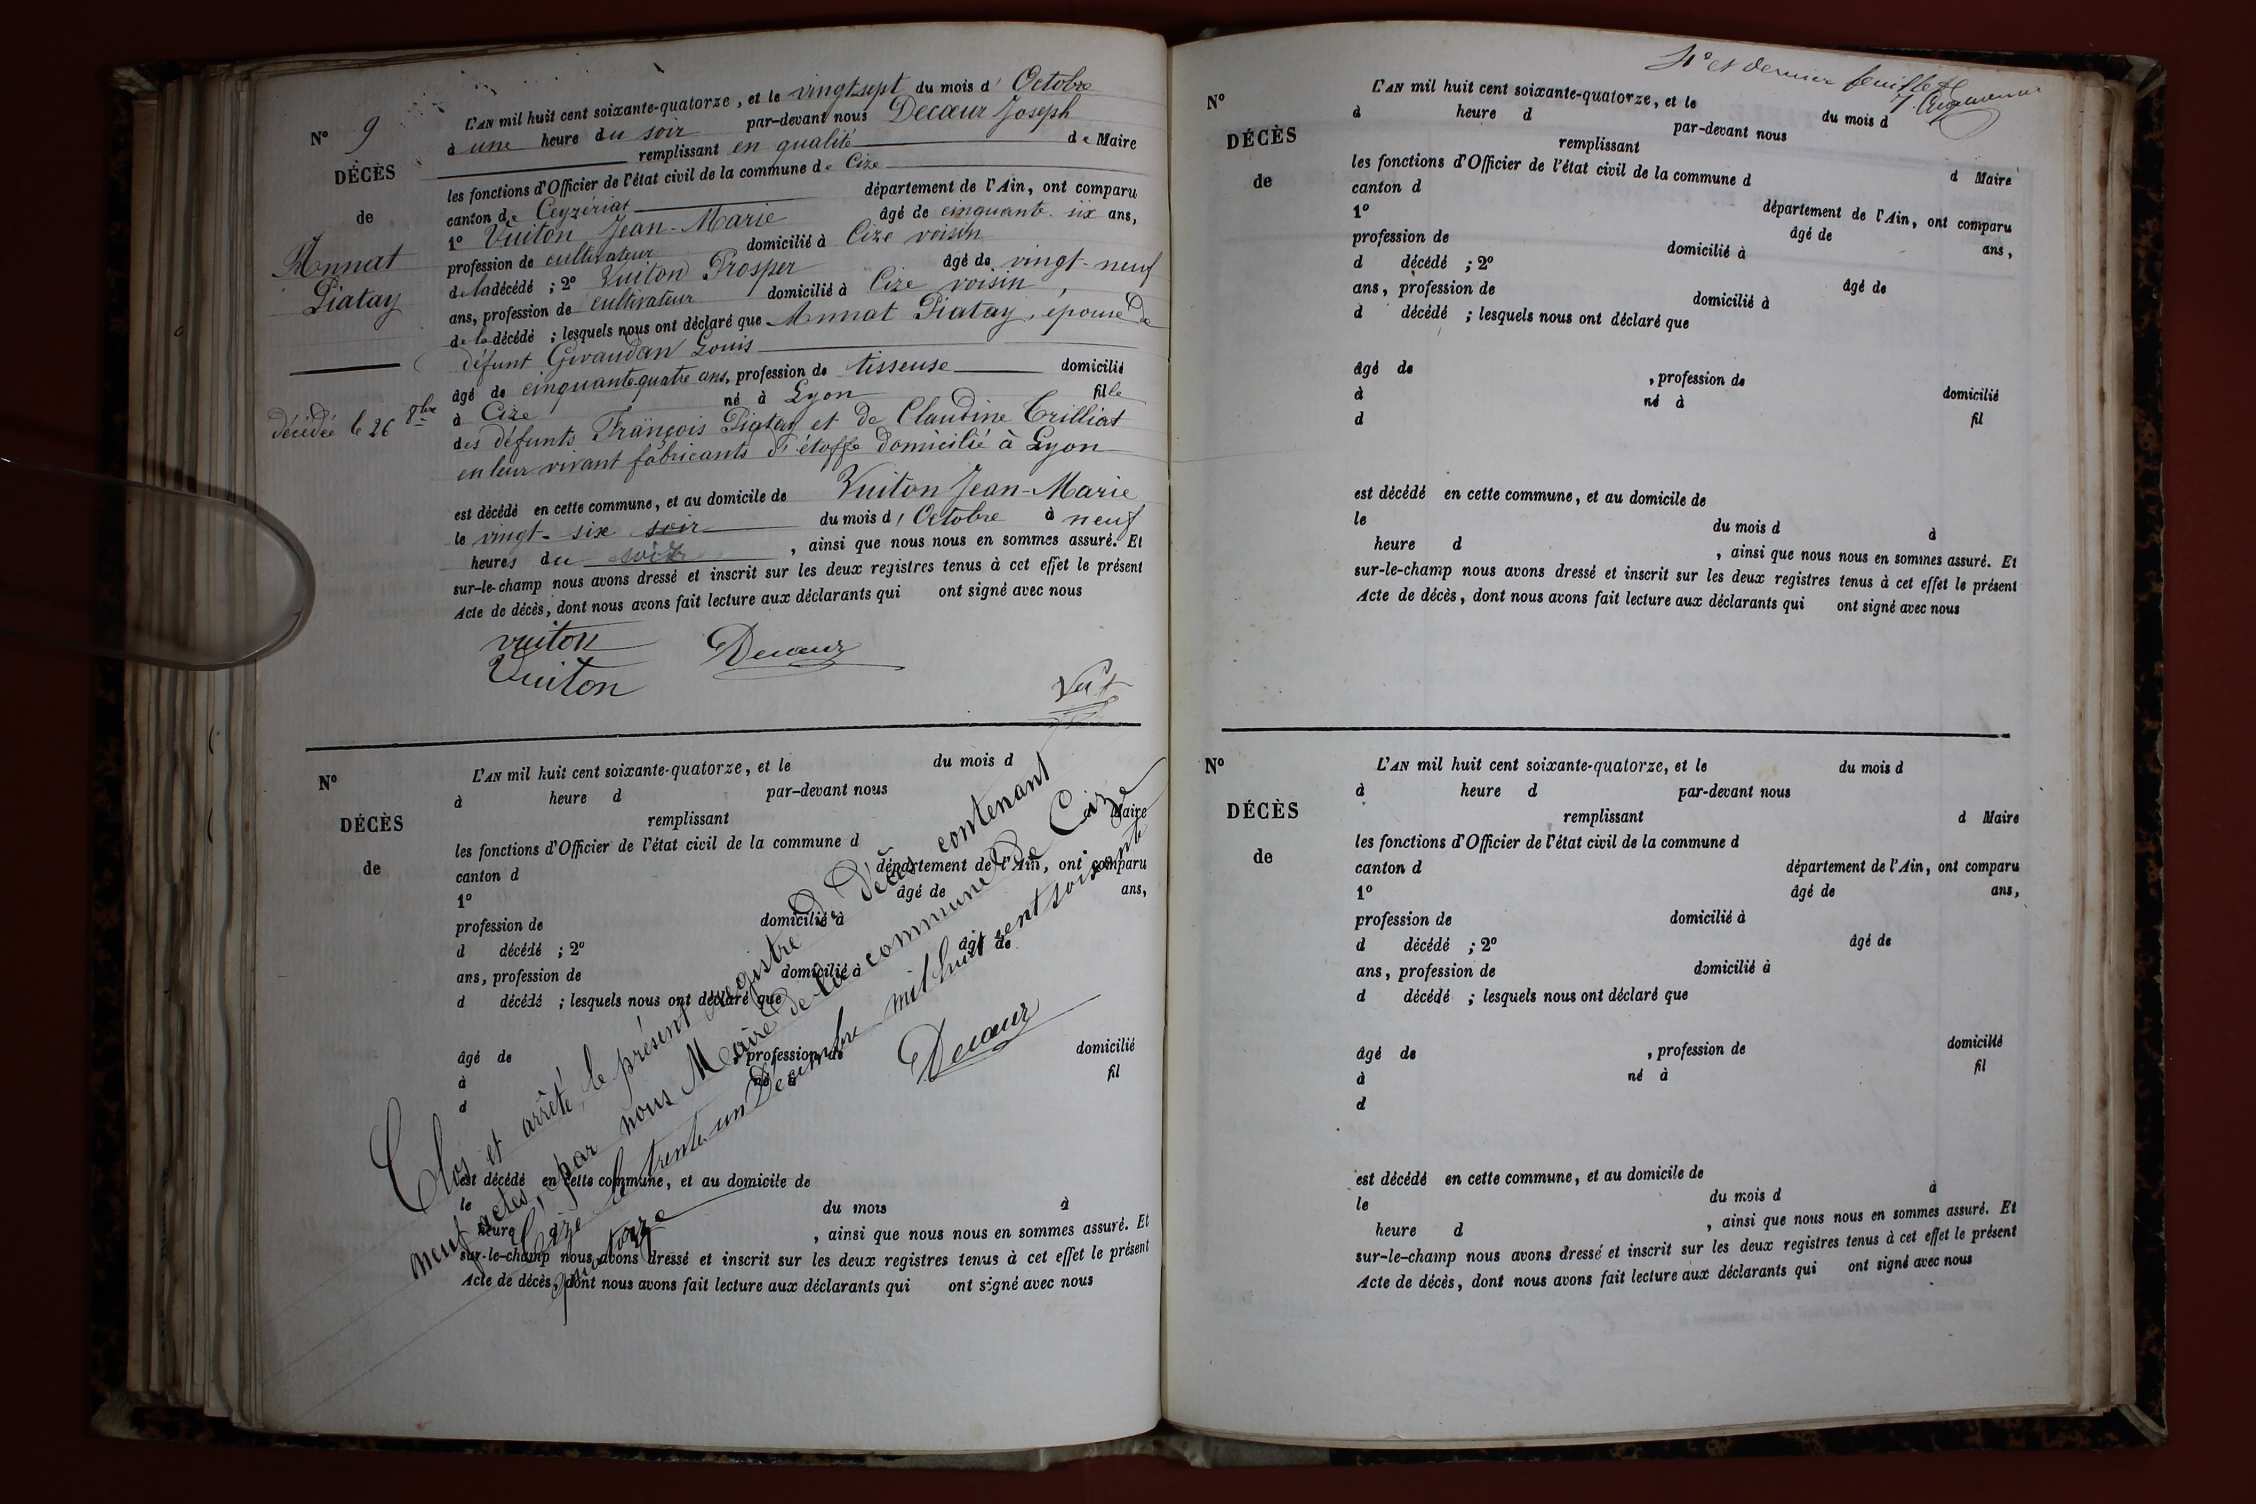 N° 9
DÉCÈS
de
Annat
Piatay
décédée le 26 8bre
L'AN mil huit cent soixante-quatorze, et le vingt sept du mois d' Octobre
à une heure du soir par-devant nous Decœur Joseph
remplissant en qualité de Maire
les fonctions d'Officier de l'état civil de la commune de Cize
canton de Ceyzériat département de l'Ain, ont comparu
1° Vuiton Jean-Marie âgé de cinquante-six ans,
profession de cultivateur domicilié à Cize voisin
de la décédé ; 2° Vuiton Prosper âgé de vingt-neuf
ans, profession de cultivateur domicilié à Cize voisin,
de la décédé ; lesquels nous ont déclaré que Annat Piatay, épouse de
défunt Gevaudan Louis
âgé de cinquante quatre ans, profession de tisseuse domicilié
à Cize né à Lyon fille
des défunts François Piatay et de Claudine Trilliat
en leur vivant fabricants d'étoffe domicilié à Lyon
est décédé en cette commune, et au domicile de Vuiton Jean-Marie
le vingt-six soir du mois d' Octobre à neuf
heures du soir, ainsi que nous nous en sommes assuré. Et
sur-le-champ nous avons dressé et inscrit sur les deux registres tenus à cet effet le présent
Acte de décès, dont nous avons fait lecture aux déclarants qui ont signé avec nous
vuiton Decœur
Vuiton
Vu
N°
DÉCÈS
de
L'AN mil huit cent soixante-quatorze, et le du mois d
à heure d par-devant nous
remplissant d Maire
les fonctions d'Officier de l'état civil de la commune d
canton d département de l'Ain, ont comparu
1° âgé de ans,
profession de domicilié à
d décédé ; 2° âgé de
ans, profession de domicilié à
d décédé ; lesquels nous ont déclaré que
âgé de , profession de domicilié
à né à fil
d
est décédé en cette commune, et au domicile de
le du mois à
heure d , ainsi que nous nous en sommes assuré. Et
sur-le-champ nous avons dressé et inscrit sur les deux registres tenus à cet effet le présent
Acte de décès, dont nous avons fait lecture aux déclarants qui ont signé avec nous
Clos et arrêté le présent registre de décès contenant
neuf actes, par nous Maire de la commune de Cize
Cize le trente un Décembre mil huit cent soixante
quatorze
Decœur
et dernier feuillet
N°
DÉCÈS
de
L'AN mil huit cent soixante-quatorze, et le du mois d
à heure d par-devant nous
remplissant d Maire
les fonctions d'Officier de l'état civil de la commune d
canton d département de l'Ain, ont comparu
1° âgé de ans,
profession de domicilié à
d décédé ; 2° âgé de
ans, profession de domicilié à
d décédé ; lesquels nous ont déclaré que
âgé de , profession de domicilié
à né à fil
d
est décédé en cette commune, et au domicile de
le du mois d à
heure d , ainsi que nous nous en sommes assuré. Et
sur-le-champ nous avons dressé et inscrit sur les deux registres tenus à cet effet le présent
Acte de décès, dont nous avons fait lecture aux déclarants qui ont signé avec nous
N°
DÉCÈS
de
L'AN mil huit cent soixante-quatorze, et le du mois d
à heure d par-devant nous
remplissant d Maire
les fonctions d'Officier de l'état civil de la commune d
canton d département de l'Ain, ont comparu
1° âgé de ans,
profession de domicilié à
d décédé ; 2° âgé de
ans, profession de domicilié à
d décédé ; lesquels nous ont déclaré que
âgé de , profession de domicilié
à né à fil
d
est décédé en cette commune, et au domicile de
le du mois d à
heure d , ainsi que nous nous en sommes assuré. Et
sur-le-champ nous avons dressé et inscrit sur les deux registres tenus à cet effet le présent
Acte de décès, dont nous avons fait lecture aux déclarants qui ont signé avec nous